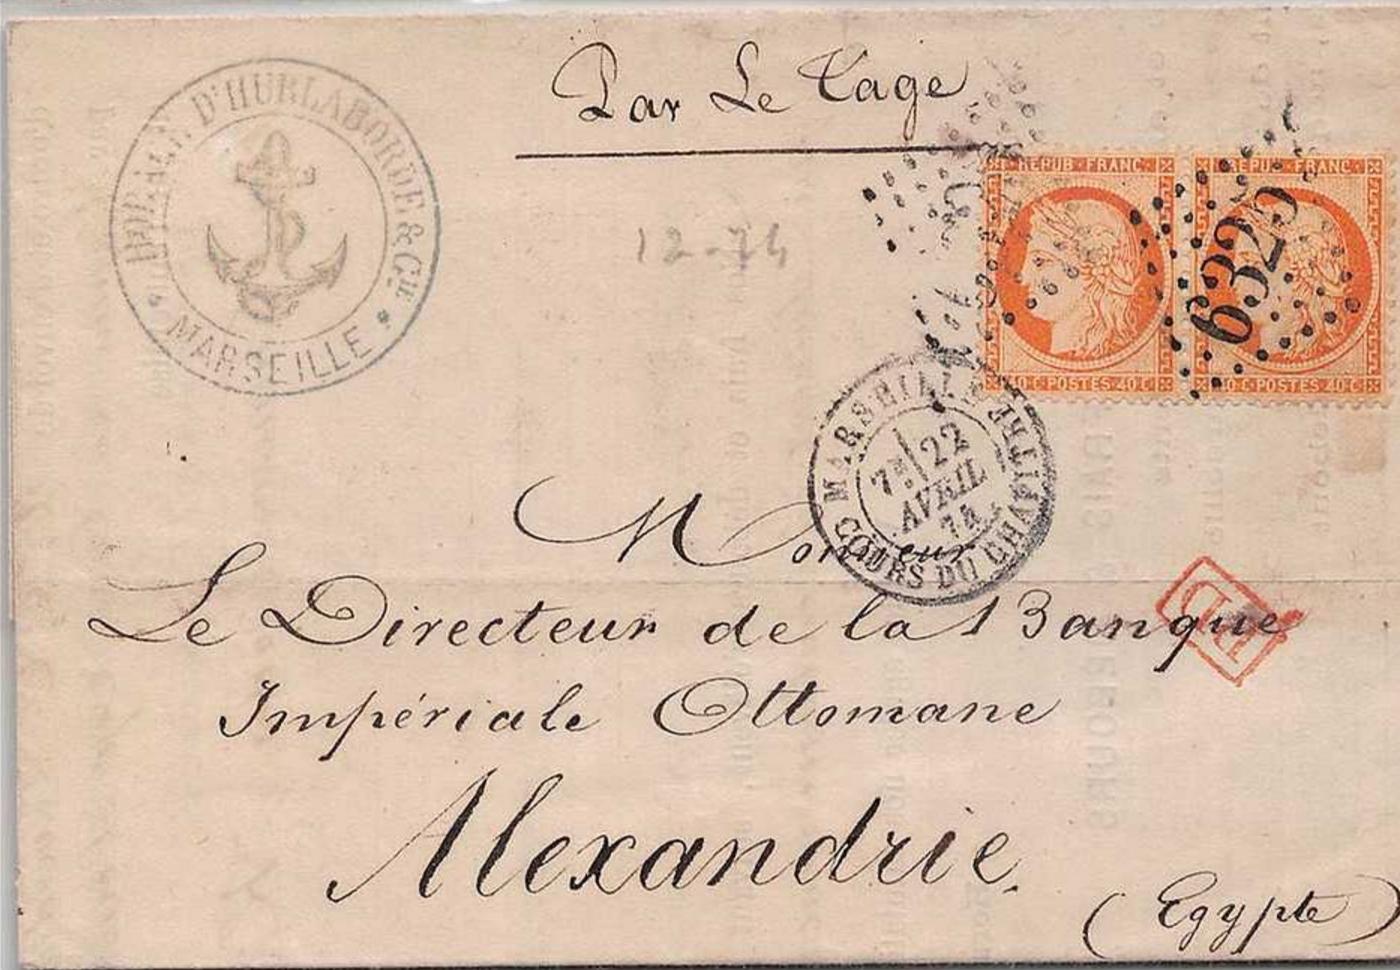 Par Le Tage
D'HURLABORDE & CIE
MARSEILLE
12-74
REPUB · FRANC
REPUB · FRANC
6325
40 C · POSTES · 40 C
40 C · POSTES · 40 C
MARSEILLE
7E 22
AVRIL
74
COURS DU CHAPITRE
Monsieur
Le Directeur de la Banque
PD
Impériale Ottomane
Alexandrie.
(Egypte)